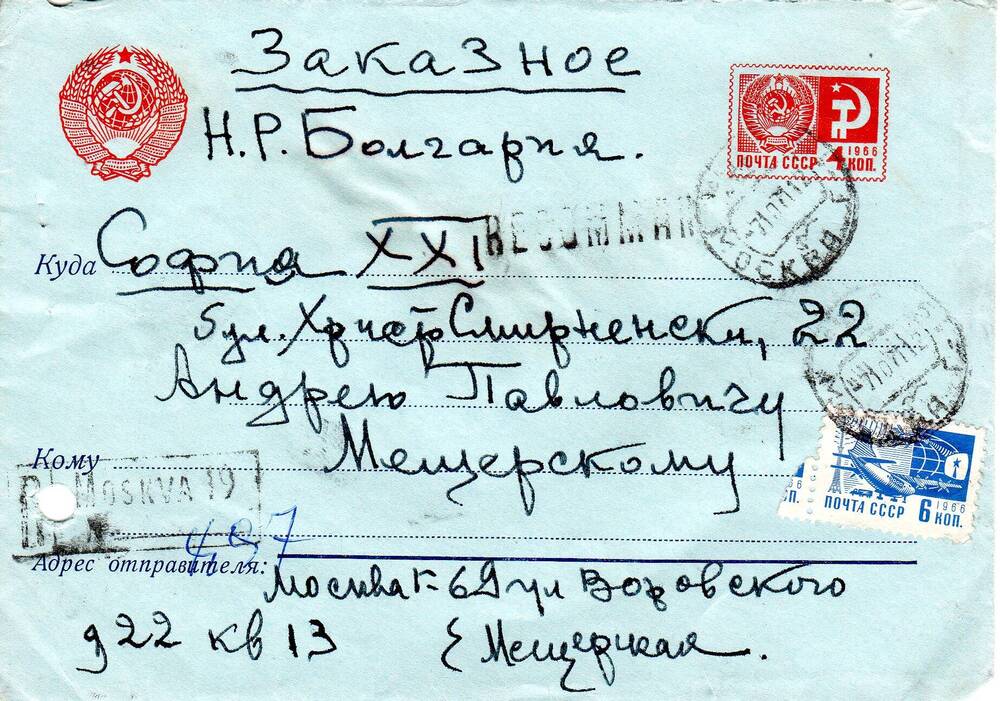 Заказное
Н.Р.Болгария.
ПОЧТА СССР 4 КОП.
1966
RECOMMAN
МОСКВА
Куда София XXI
бул. Христо Смирненски, 22
Андрею Павловичу
Кому Мещерскому
MOSKVA 19
497
ПОЧТА СССР 6 КОП.
1966
СП.
Адрес отправителя: Москва Г-69 ул Воровского
д 22 кв 13 Е Мещерская.